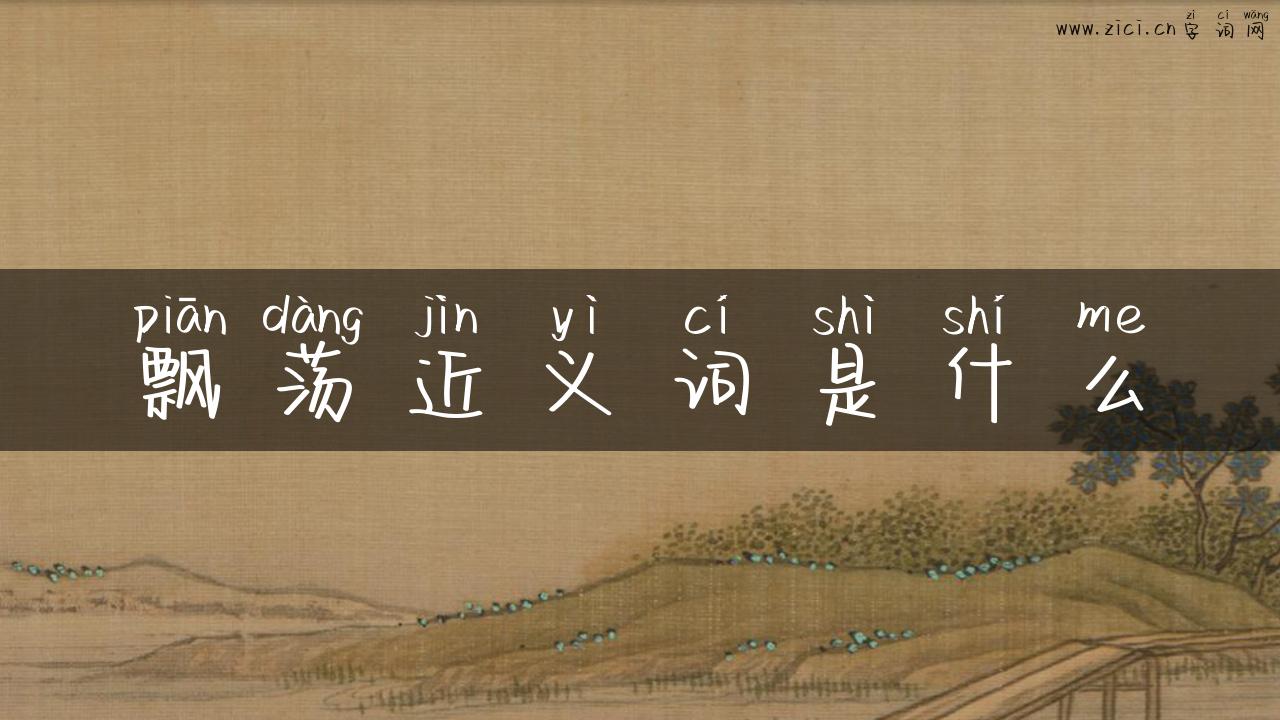 zì cí wǎng
www.zici.cn 字词网
piān dàng jìn yì cí shì shí me
飘荡近义词是什么